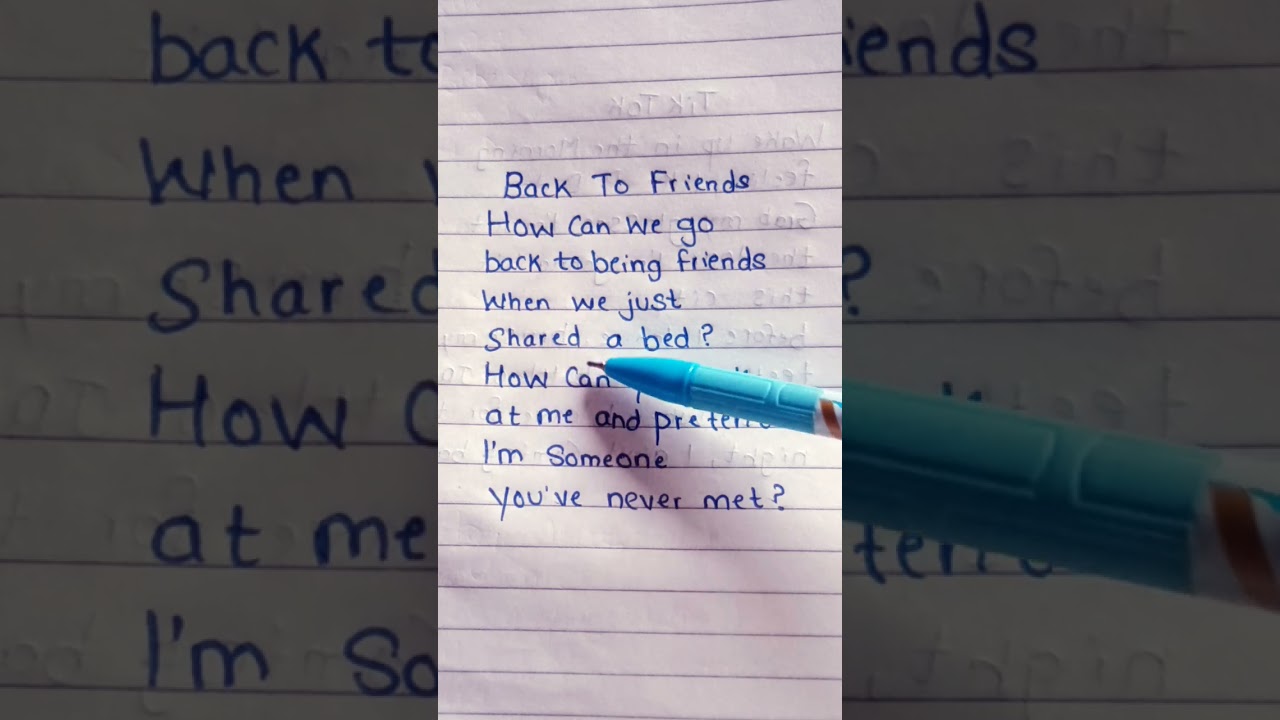 Back To Friends
How Can We go
back to being friends
When we just
Shared a bed?
How Can
at me and
I'm Someone
You've never met?